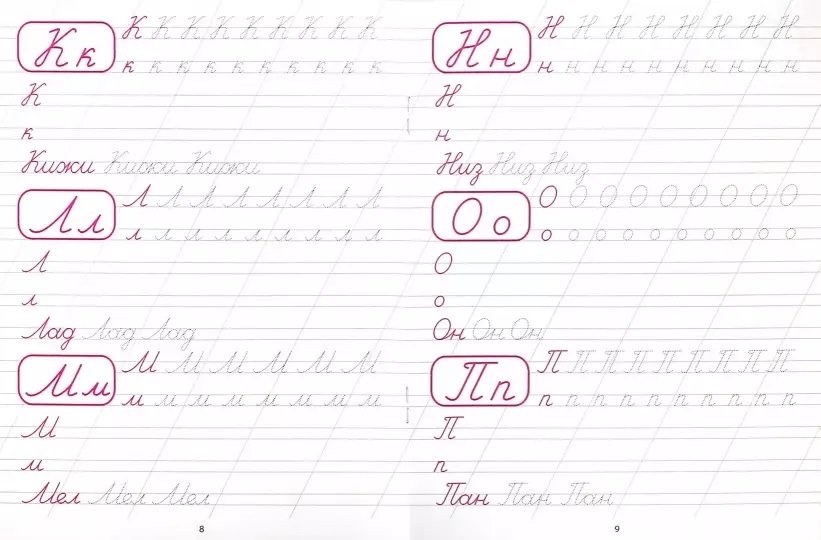 К к К К К К К К К К К
к к к к к к к к к к
К
к
Кижи Кижи Кижи
Л л Л Л Л Л Л Л Л Л
л л л л л л л л л
Л
л
Лад Лад Лад
М м М М М М М М
м м м м м м м м
М
м
Мел Мел Мел
8
Н н Н Н Н Н Н Н Н Н
н н н н н н н н н н
Н
н
Низ Низ Низ
О о О О О О О О О О О
о о о о о о о о о о
О
о
Он Он Он
П п П П П П П П П П П
п п п п п п п п п п
П
п
Пан Пан Пан
9